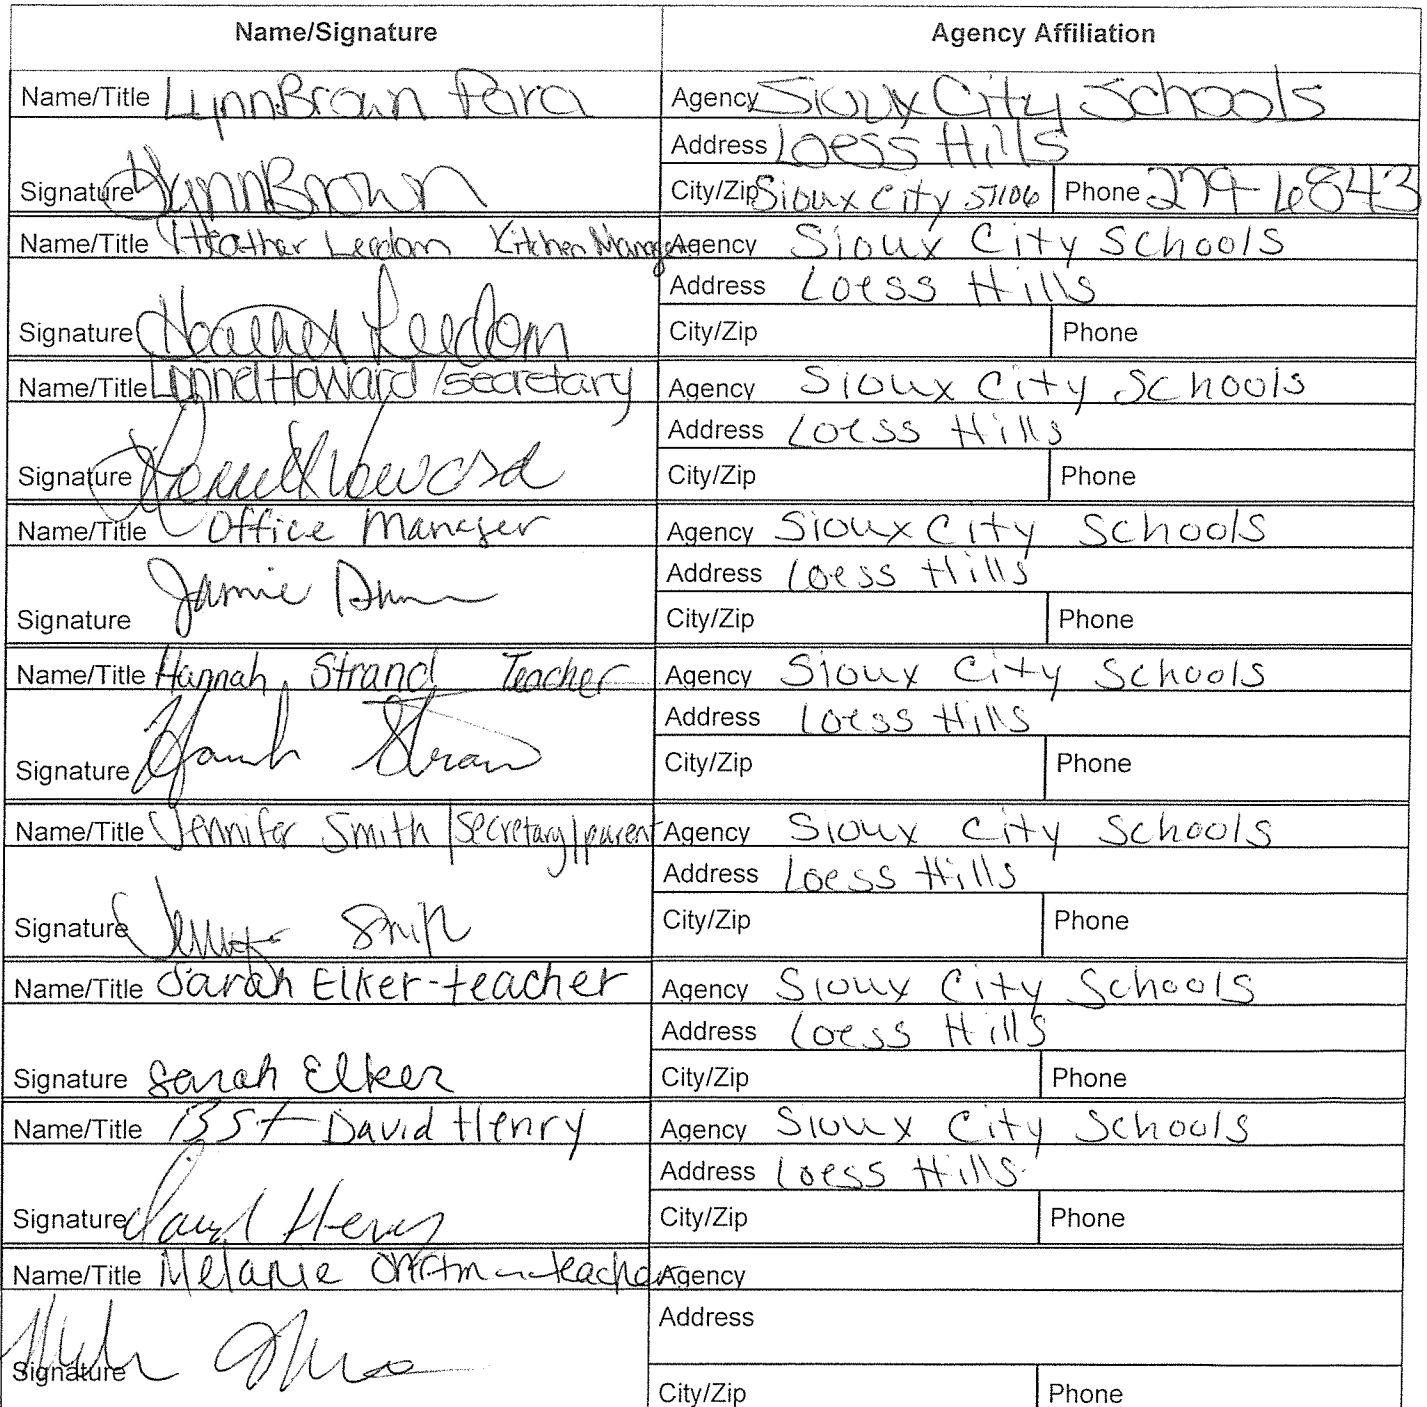 Name/Signature Agency Affiliation
Name/Title Lynn Brown Para Agency Sioux City Schools
Address Loess Hills
Signature Lynn Brown City/Zip Sioux City 51106 Phone 279-6843
Name/Title Heather Leedom Kitchen Manager Agency Sioux City Schools
Address Loess Hills
Signature Heather Leedom City/Zip Phone
Name/Title Lonnel Howard/secretary Agency Sioux City Schools
Address Loess Hills
Signature Howard City/Zip Phone
Name/Title Office Manager Agency Sioux City Schools
Address Loess Hills
Signature Jamie City/Zip Phone
Name/Title Hannah Strand Teacher Agency Sioux City Schools
Address Loess Hills
Signature Hannah Strand City/Zip Phone
Name/Title Jennifer Smith |Secretary|parent Agency Sioux City Schools
Address Loess Hills
Signature Jennifer Smith City/Zip Phone
Name/Title Sarah Elker-teacher Agency Sioux City Schools
Address Loess Hills
Signature Sarah Elker City/Zip Phone
Name/Title BST David Henry Agency Sioux City Schools
Address Loess Hills
Signature David Henry City/Zip Phone
Name/Title Melanie teacher Agency
Address
Signature City/Zip Phone